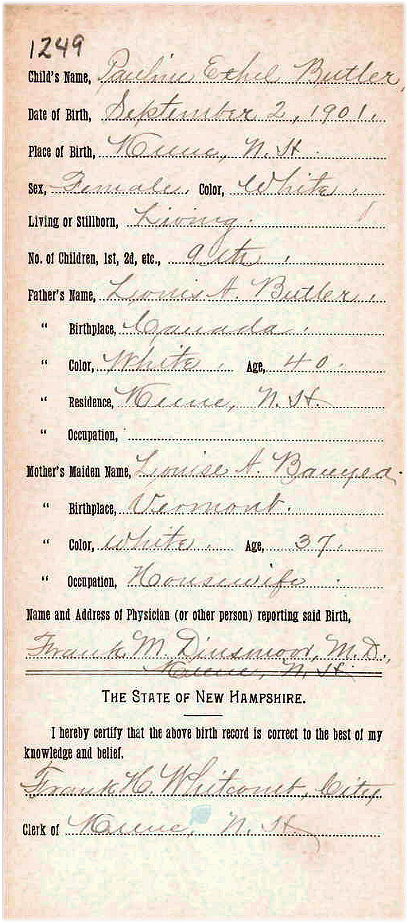 1249
Child's Name, Pauline Ethel Butler,
Date of Birth, September 2, 1901.
Place of Birth, Keene, N. H.
Sex, Female, Color, White.
Living or Stillborn, Living.
No. of Children, 1st, 2d, etc., 9th.
Father's Name, Louis A. Butler,
" Birthplace, Canada.
" Color, White. Age, 40.
" Residence, Keene, N. H.
" Occupation,
Mother's Maiden Name, Louise A.
" Birthplace, Vermont.
" Color, White. Age, 37.
" Occupation, Housewife.
Name and Address of Physician (or other person) reporting said Birth,
Frank M. Dinsmoor, M. D.,
Keene, N. H.
THE STATE OF NEW HAMPSHIRE.
I hereby certify that the above birth record is correct to the best of my
knowledge and belief.
Frank H. Whitcomb, City
Clerk of Keene, N. H.